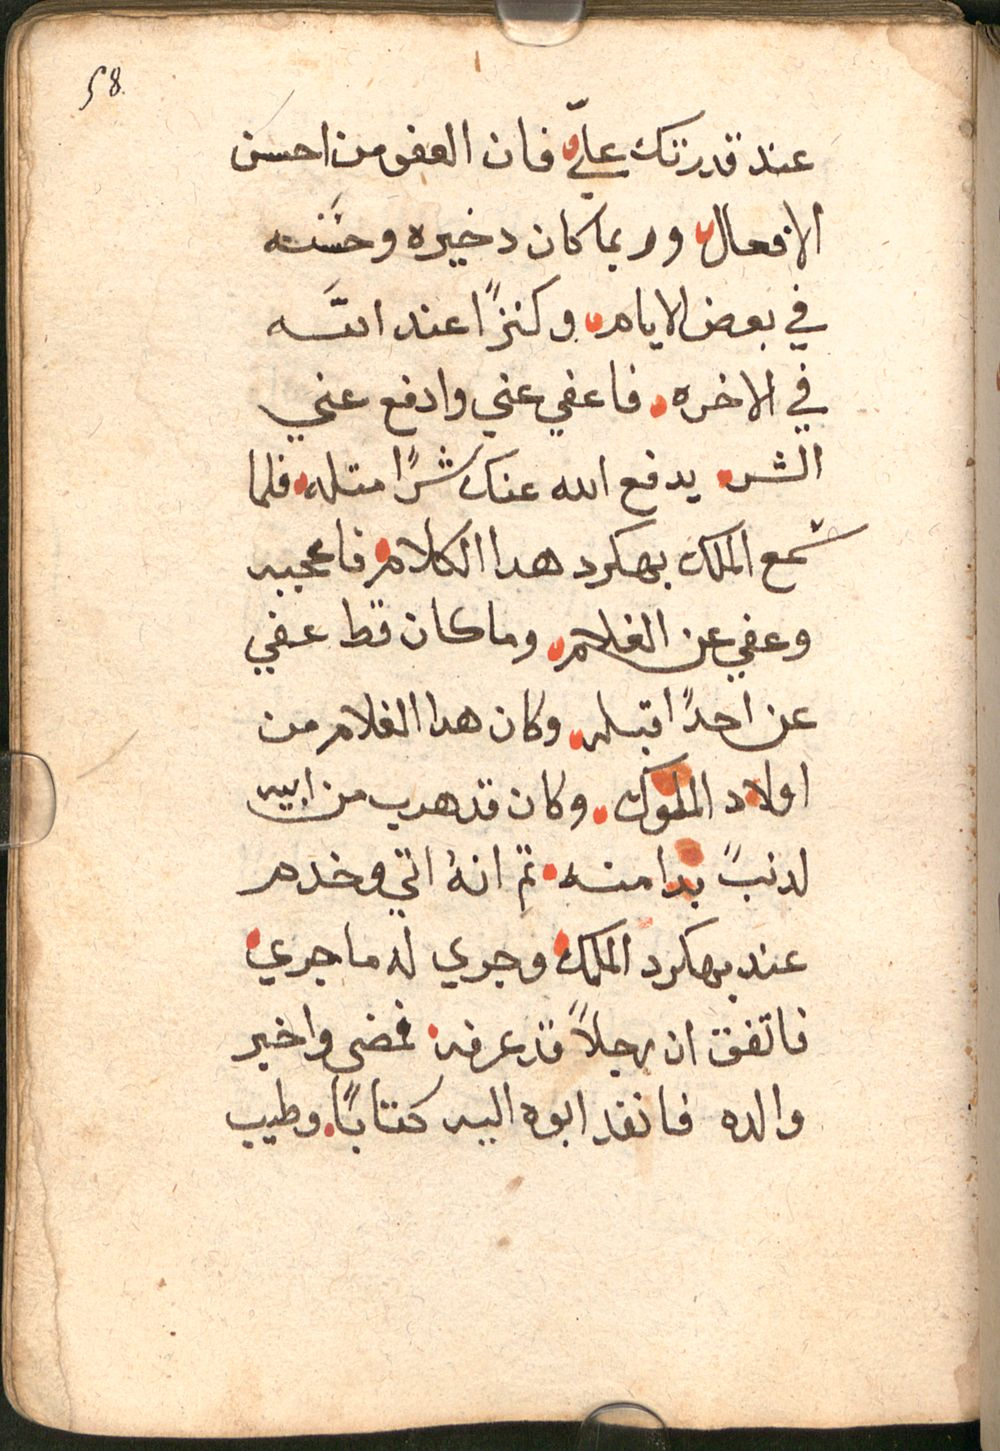 58
عند قدرتك عليّ فان العفو من احسن
الافعال وربما كان دخيره وحسَنه
في بعض الايام وكنزًا عند اللَّه
في الاخره فاعفي عني وادفع عني
الشر يدفع الله عنك شرًا متله فلما
سمع الملك بهكرد هدا الكلام فاعجبه
وعفي عن الغلام وما كان قط عفي
عن احدًا قبله وكان هدا الغلام من
اولاد الملوك وكان قد هرب من ابيه
لدنبً بدا منه تم انهُ اتي وخدم
عند بهكرد الملك وجري له ما جري
فاتفق ان رجلاً قد عرفه فمضى واخبر
والده فانفد ابوه اليه كتابًا وطيب